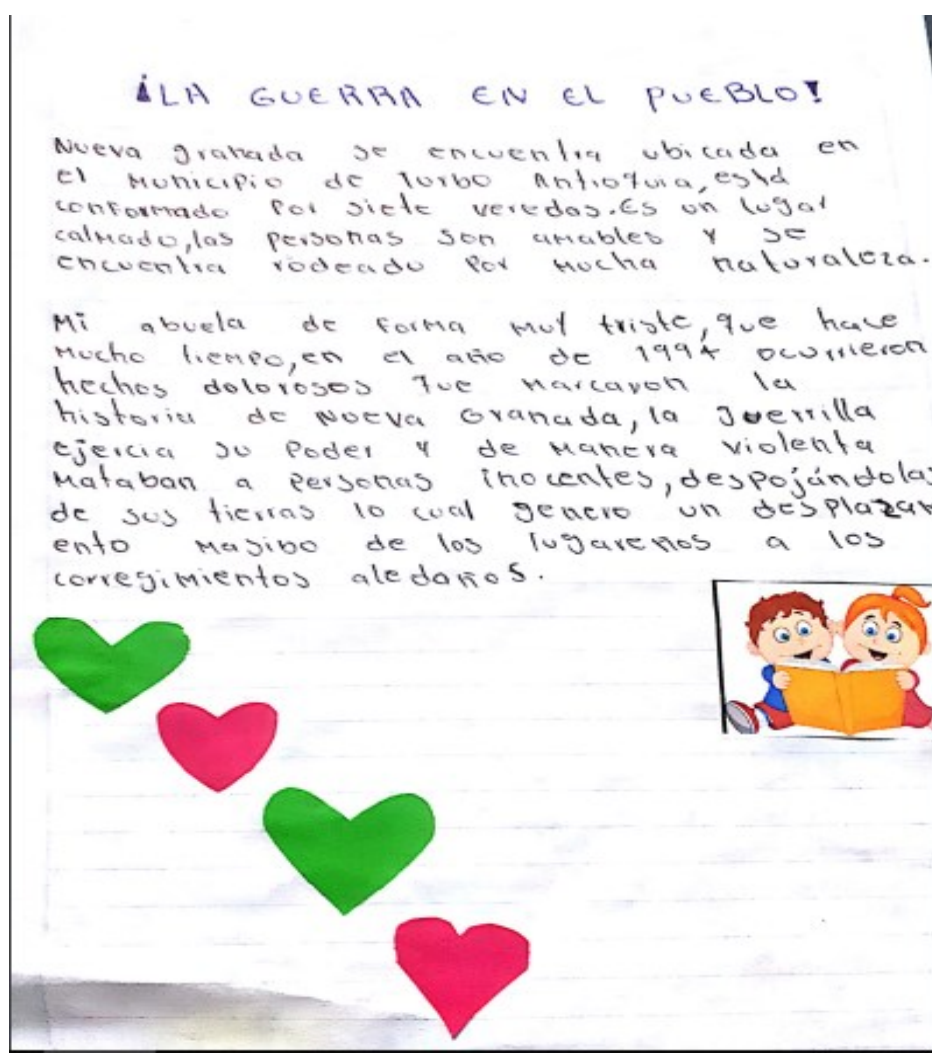 ¡LA GUERRA EN EL PUEBLO!
Nueva granada se encuentra ubicada en
el Municipio de Turbo Antioquia, está
conformado por siete veredas. Es un lugar
calmado, las personas son amables y se
encuentra rodeado por mucha naturaleza.
Mi abuela de forma muy triste, que hace
mucho tiempo, en el año de 1994 ocurrieron
hechos dolorosos que marcaron la
historia de Nueva Granada, la guerrilla
ejercia su poder y de manera violenta
mataban a personas inocentes, despojándolas
de sus tierras lo cual genero un desplazam
ento masibo de los lugareños a los
corregimientos aledaños.